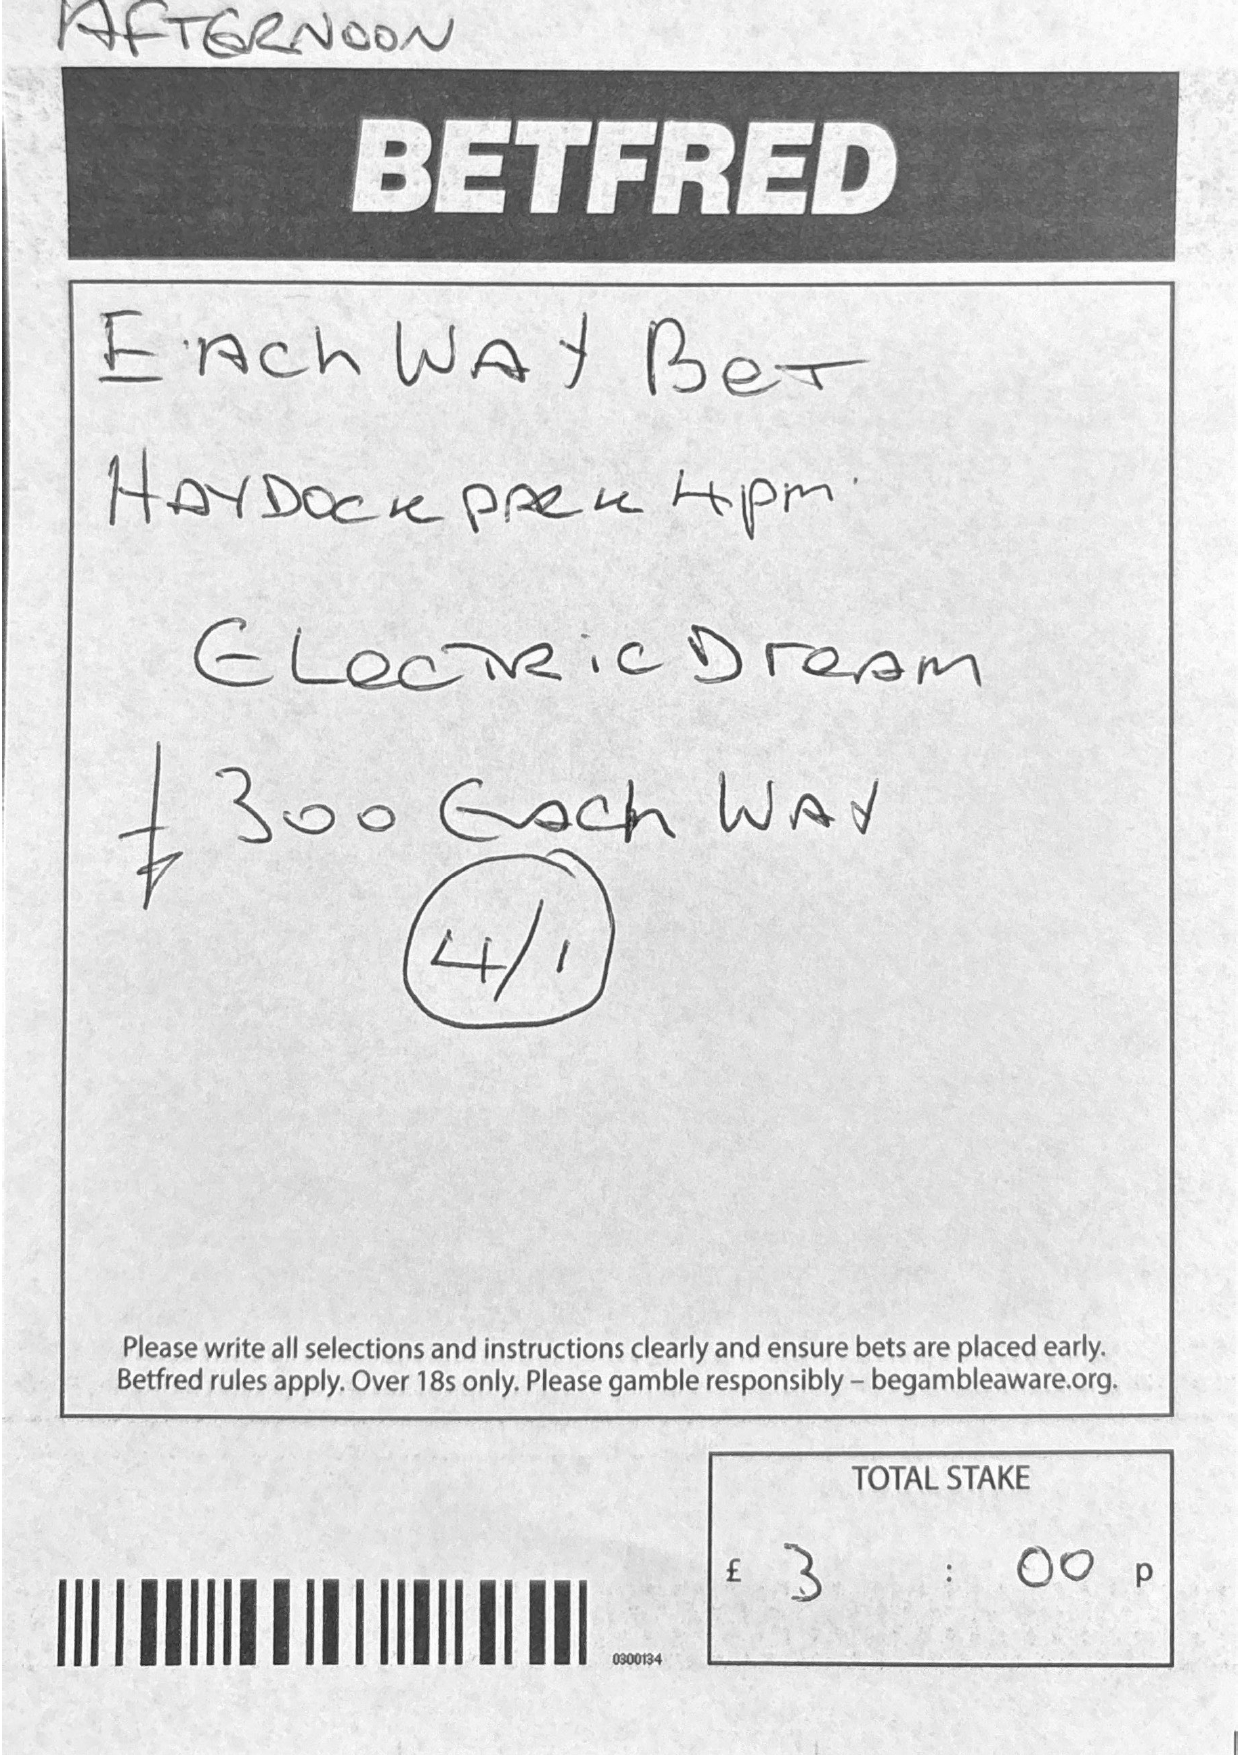 AFTERNOON
BETFRED
EACh WAY BeT
HAYDOCK PARK 4pm
ELecTRic Dream
£ 300 Each WAY
4/1
Please write all selections and instructions clearly and ensure bets are placed early.
Betfred rules apply. Over 18s only. Please gamble responsibly – begambleaware.org.
TOTAL STAKE
£ 3 : 00 p
0300134